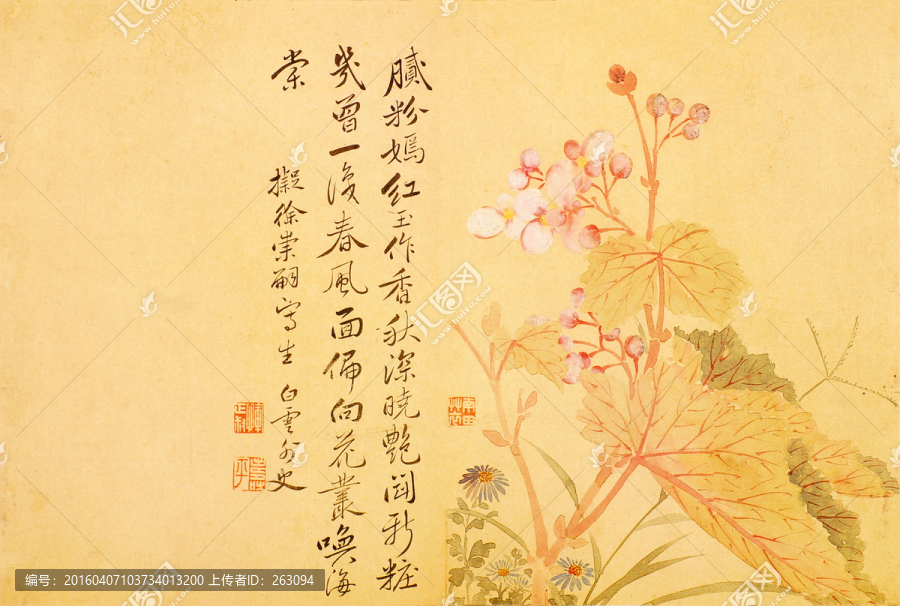 膩粉嫣紅玉作香秋深曉艷鬪新粧
幾曾一後春風面偏向花叢喚海
棠
擬徐崇嗣寫生
白雲外史
汇图网
编号：20160407103734013200 上传者ID：263094